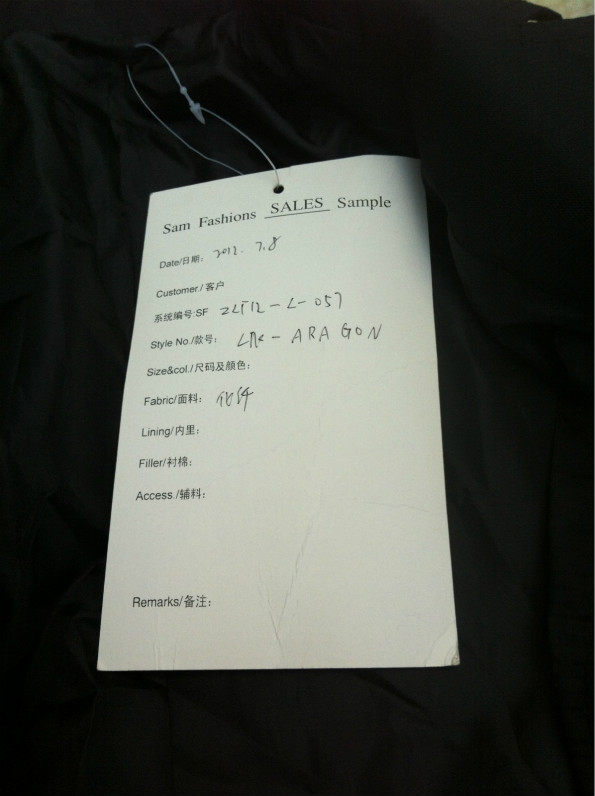 Sam Fashions SALES Sample
Date/日期: 2012. 7.8
Customer./客户
系统编号:SF ZLF12-L-057
Style No./款号: - ARAGON
Size&col./尺码及颜色:
Fabric/面料: 化纤
Lining/内里:
Filler/衬棉:
Access./辅料:
Remarks/备注: